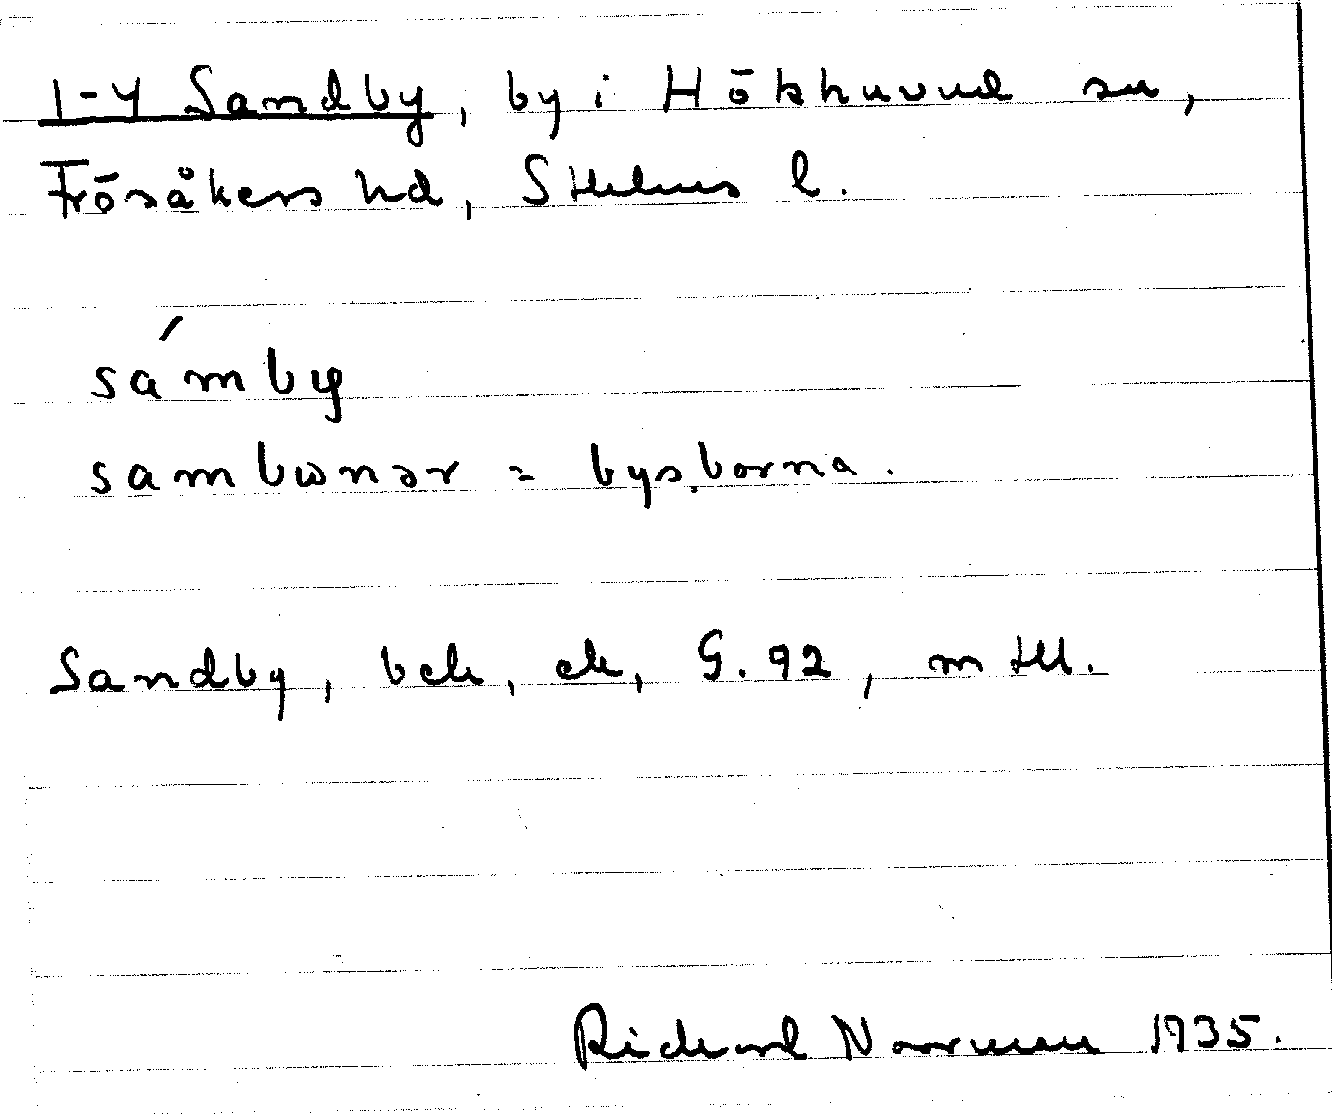 1-4 Sandby, by i Hökhuvud sn,
Frösåkers hd, Sthlms l.
sámby
sambωnər = bysborna.
Sandby, bek, ek, G. 92, m fl.
Richard Norrman 1935.